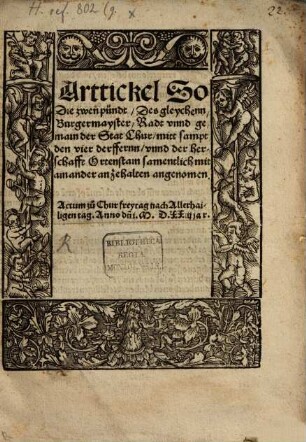 H. ref. 802 (9.
22.
Arttickel So
Die zwen pündt / Des gleychenn,
Burgermayster / Radt vnnd ge
main der Stat Chur / mitt sampt
den vier derffernn / vnnd der her-
schafft Ortenstain samentlich mit
ainander anzehalten angenomen.
Actum zů Chur freytag nach Allerhai-
ligen tag. Anno dñi. M. D. XXiij jar.
BIBLIOTHECA
REGIA